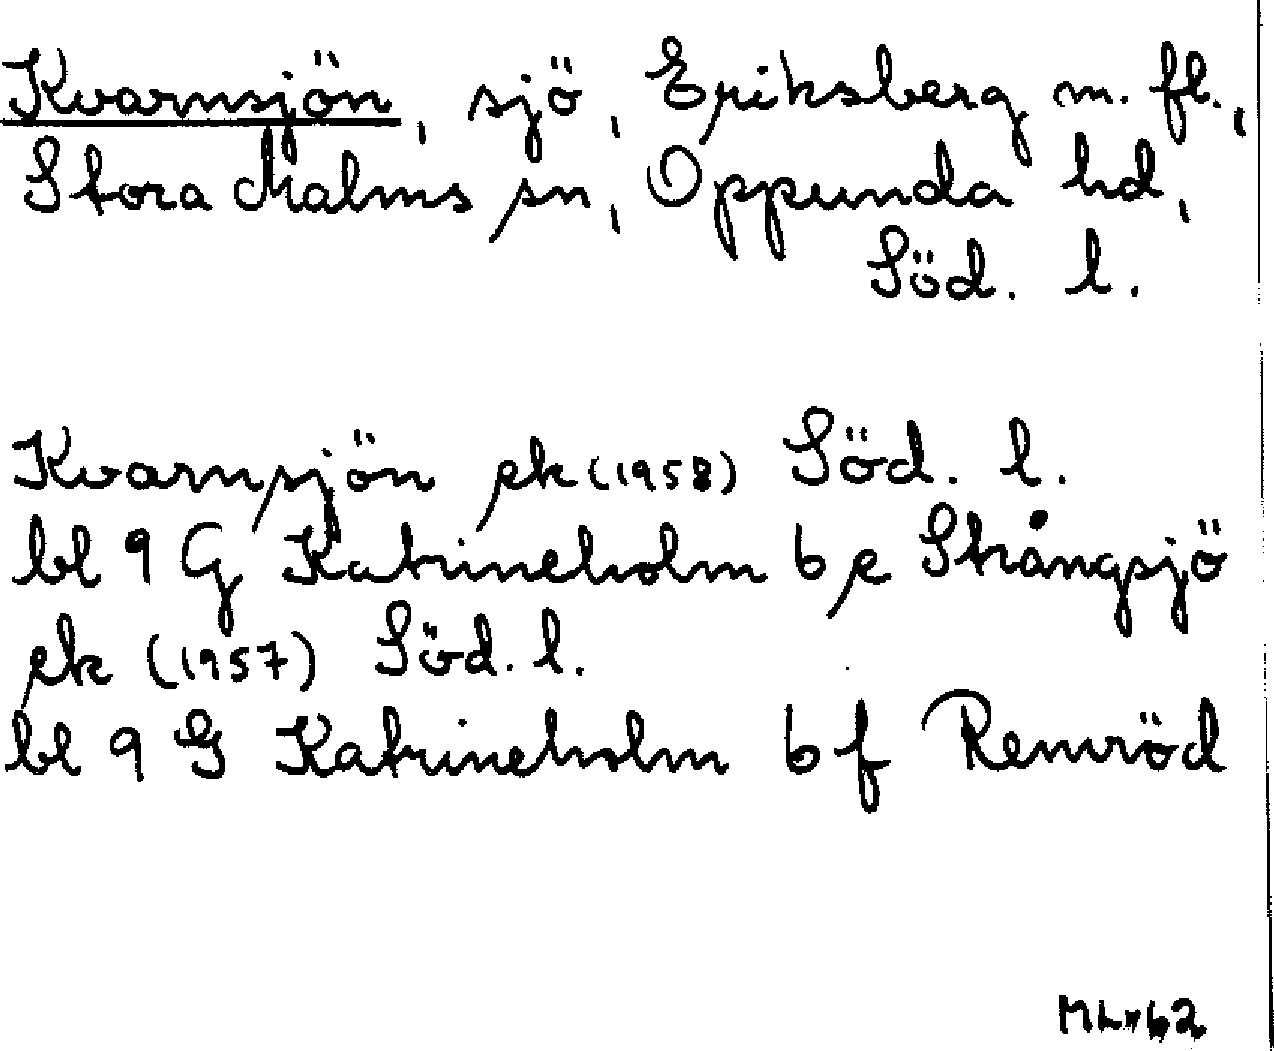 Kvarnsjön, sjö, Eriksberg m. fl.,
Stora Malms sn, Oppunda hd,
Söd. l.
Kvarnsjön ek (1958) Söd. l.
bl 9 G Katrineholm b e Strångsjö
ek (1957) Söd. l.
bl 9 G Katrineholm b f Renröd